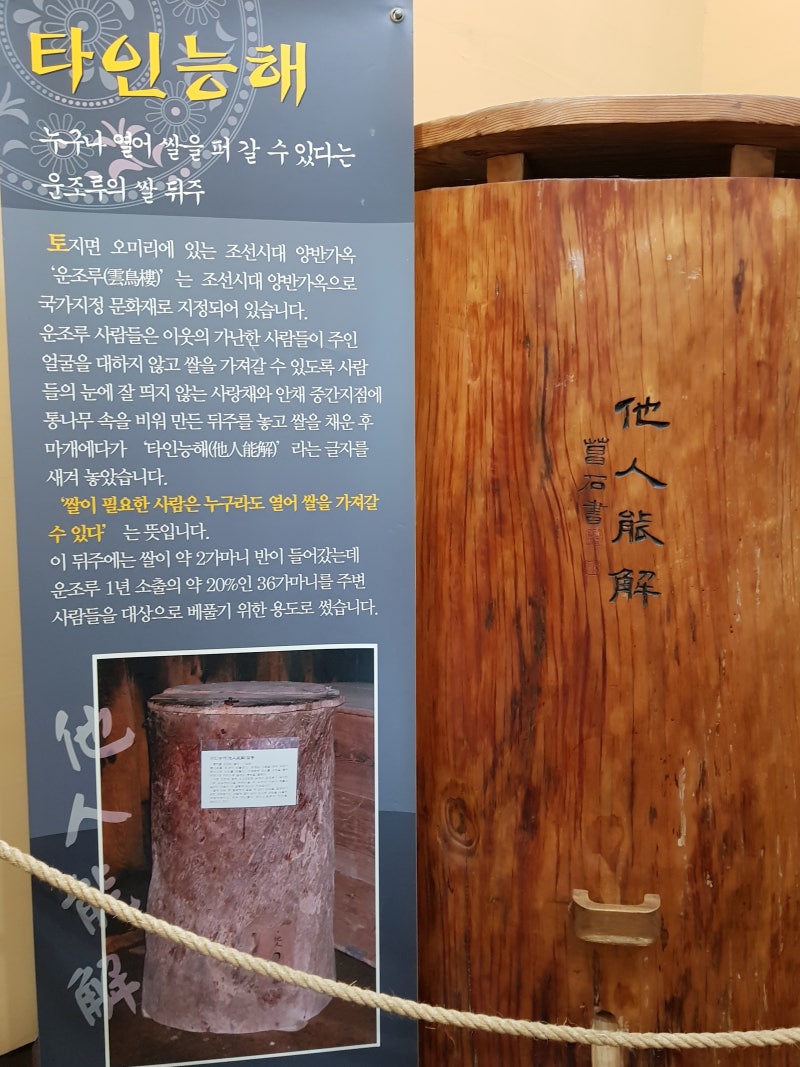 타인능해
누구나 열어 쌀을 퍼 갈 수 있다는
운조루의 쌀 뒤주
토지면 오미리에 있는 조선시대 양반가옥
‘운조루(雲鳥樓)’ 는 조선시대 양반가옥으로
국가지정 문화재로 지정되어 있습니다.
운조루 사람들은 이웃의 가난한 사람들이 주인
얼굴을 대하지 않고 쌀을 가져갈 수 있도록 사람
들의 눈에 잘 띄지 않는 사랑채와 안채 중간지점에
통나무 속을 비워 만든 뒤주를 놓고 쌀을 채운 후
마개에다가 ‘타인능해(他人能解)’ 라는 글자를
새겨 놓았습니다.
‘쌀이 필요한 사람은 누구라도 열어 쌀을 가져갈
수 있다’ 는 뜻입니다.
이 뒤주에는 쌀이 약 2가마니 반이 들어갔는데
운조루 1년 소출의 약 20%인 36가마니를 주변
사람들을 대상으로 베풀기 위한 용도로 썼습니다.
他人能解
他人能解
石書